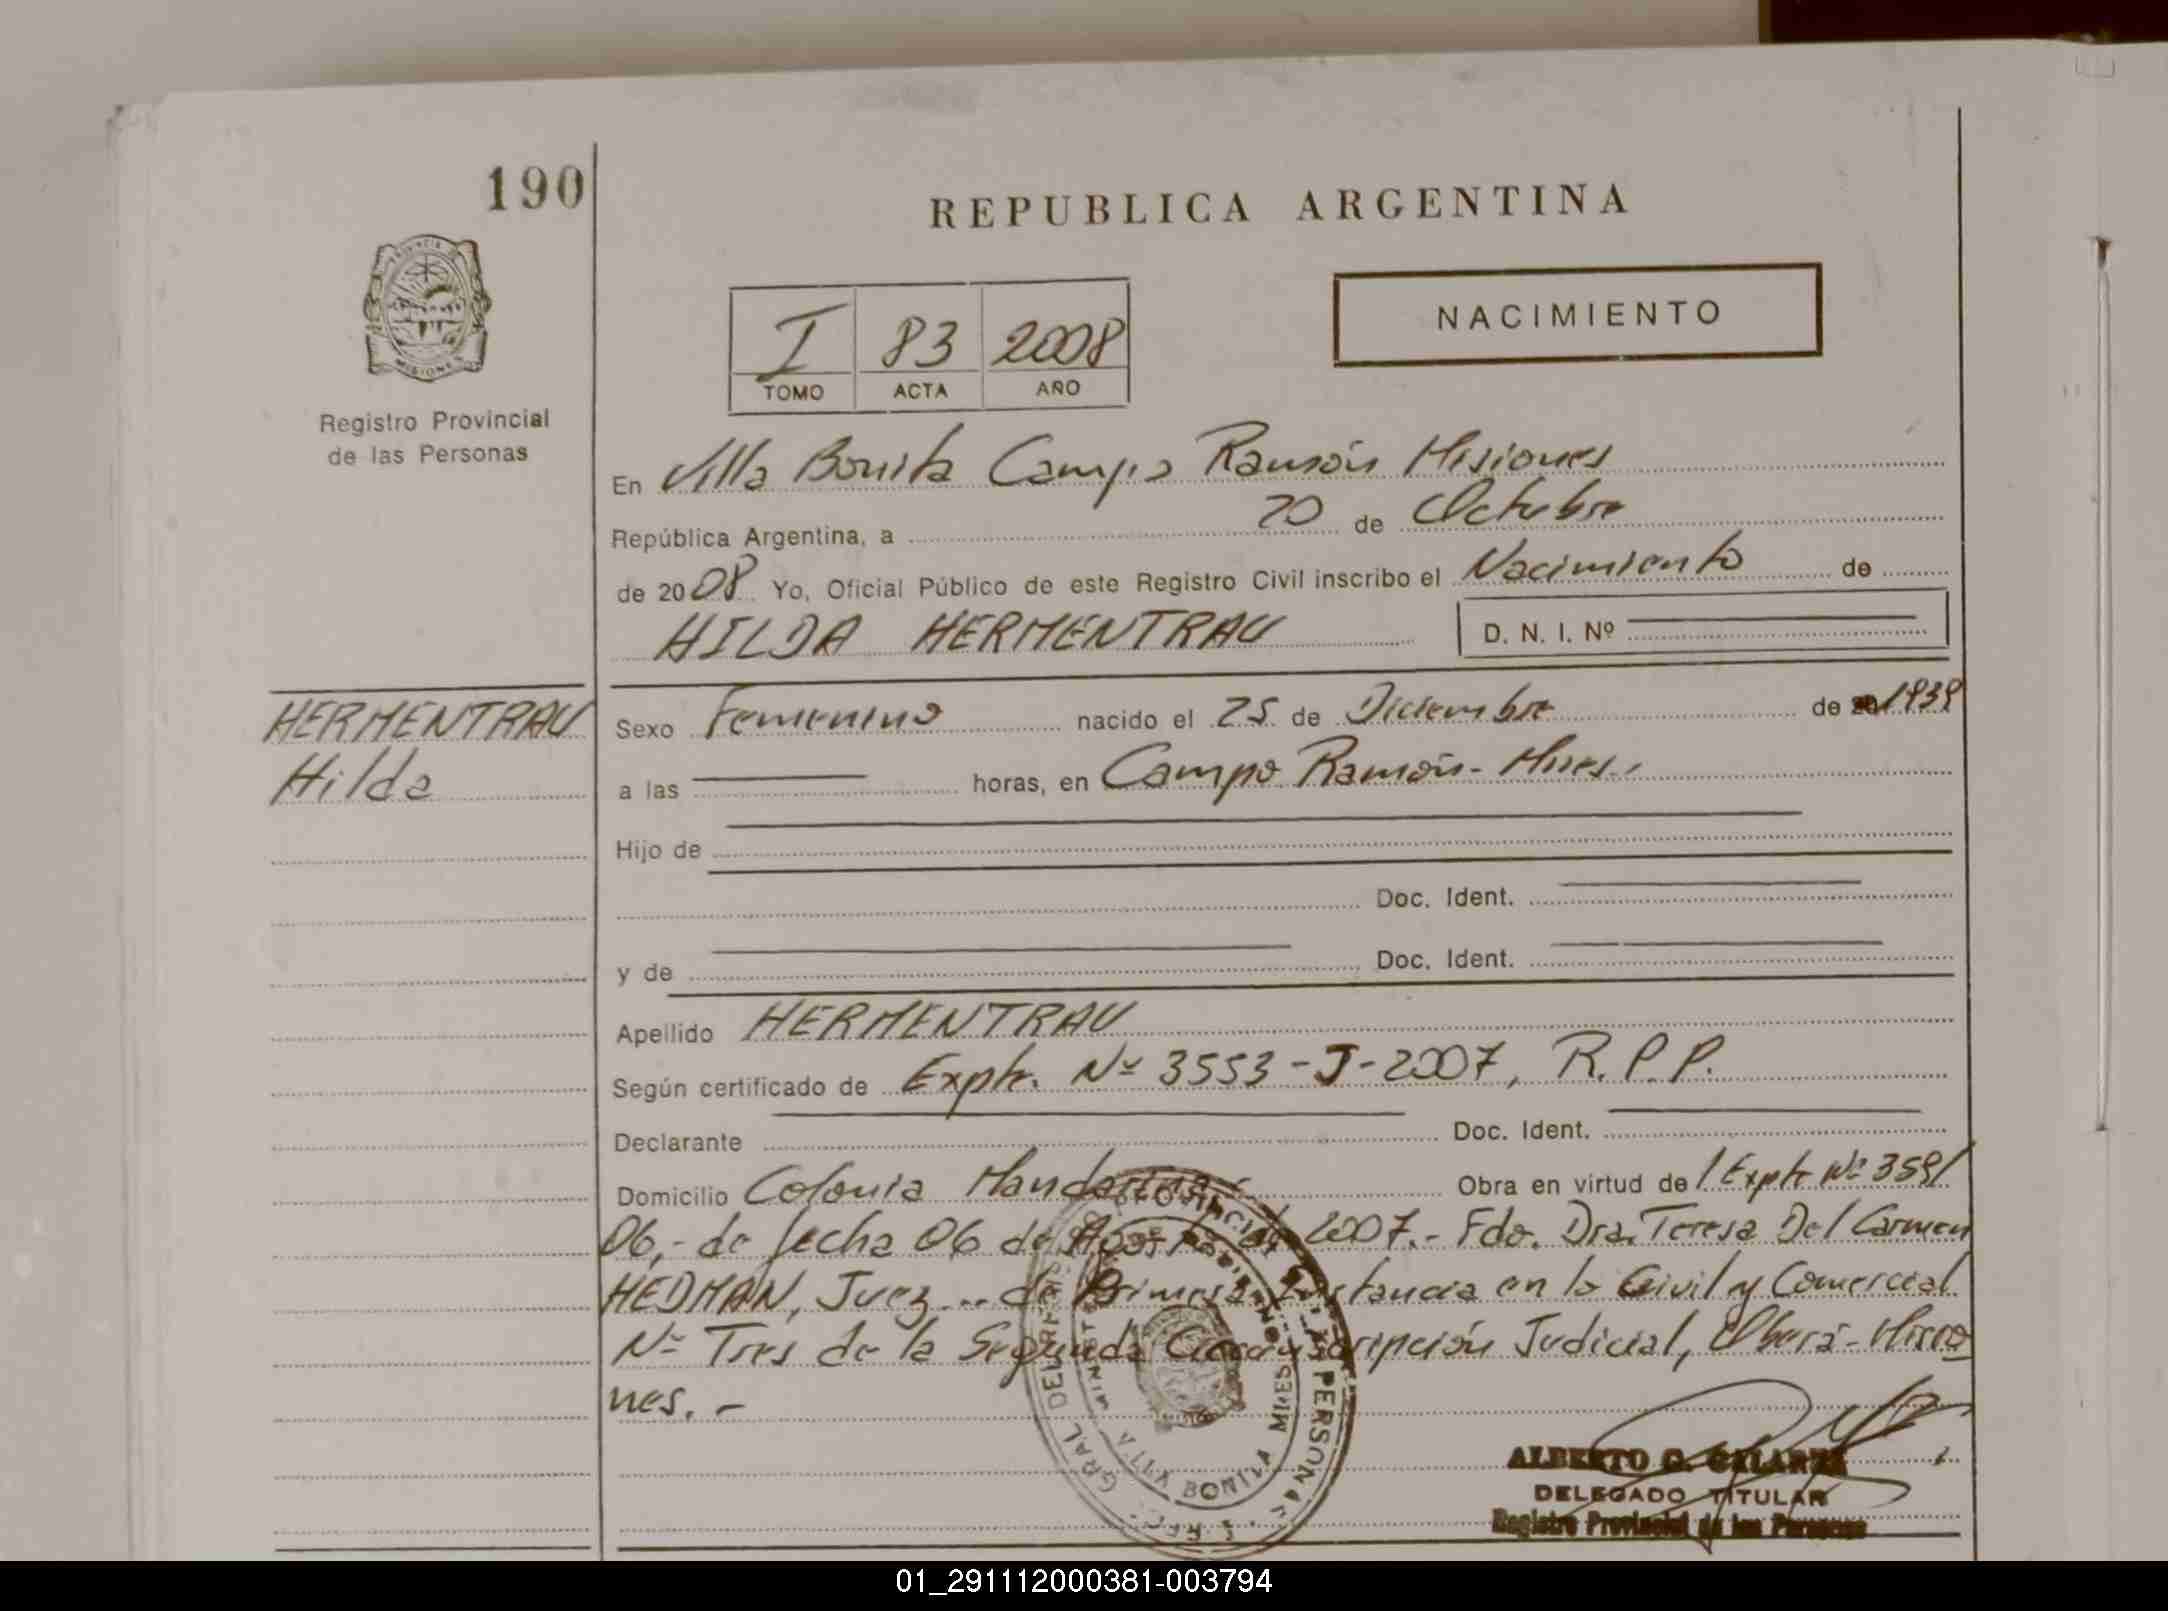 190
REPUBLICA ARGENTINA
PROVINCIA
MISIONES
Registro Provincial
de las Personas
I 83 2008
TOMO ACTA AÑO
NACIMIENTO
En Villa Bonita Campo Ramón Misiones
República Argentina, a 20 de Octubre
de 2008 Yo, Oficial Público de este Registro Civil inscribo el Nacimiento de
HILDA HERMENTRAU D. N. I. Nº
HERMENTRAU
Hilda
Sexo Femenino nacido el 25 de Diciembre de 1939
a las horas, en Campo Ramón - Mnes.
Hijo de
Doc. Ident.
y de Doc. Ident.
Apellido HERMENTRAU
Según certificado de Expte. Nº 3553-J-2007, R.P.P.
Declarante Doc. Ident.
Domicilio Colonia Mandarina Obra en virtud de / Expte Nº 359/
06,- de fecha 06 de Agosto de 2007.- Fdo. Dra. Teresa Del Carmen
HEDMAN, Juez de Primera Instancia en lo Civil y Comercial
Nº Tres de la Segunda Circunscripción Judicial, Oberá - Misio
nes. -
VILLA BONITA MNES
ALBERTO G. GALARZA
DELEGADO TITULAR
Registro Provincial de las Personas
01_291112000381-003794